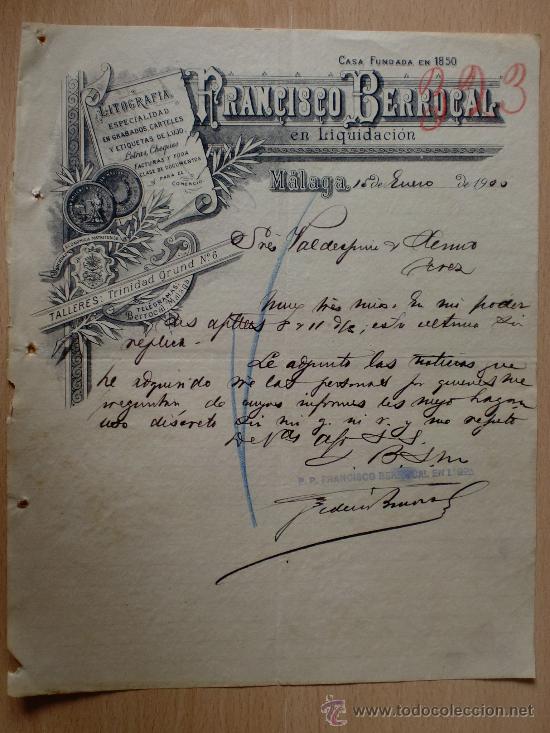 CASA FUNDADA EN 1850
393
FRANCISCO BERROCAL
en Liquidación
LITOGRAFÍA
ESPECIALIDAD
EN GRABADOS, CARTELES
Y ETIQUETAS DE LUJO
Letras, Cheques
FACTURAS Y TODA
CLASE DE DOCUMENTOS
PARA EL
COMERCIO
TALLERES: Trinidad Grund Nº 6
TELEGRAMAS:
Berrocal Málaga
Málaga, 15 de Enero de 1900
Sres Valdespino y Hermo
Jerez
Muy Sres mios: En mi poder
sus 8 y 11 d/c, esta ultima sin
replica.
Le adjunto las noticias que
he adquirido de las personas por quienes me
preguntan de cuyos informes les ruego hagan
uso discreto sin mi g. ni r. y me repito
De Vds afo S. S.
Q. B. S. M
P. P. FRANCISCO BERROCAL EN LIQON
Federico Berrocal
todocoleccion
www.todocoleccion.net